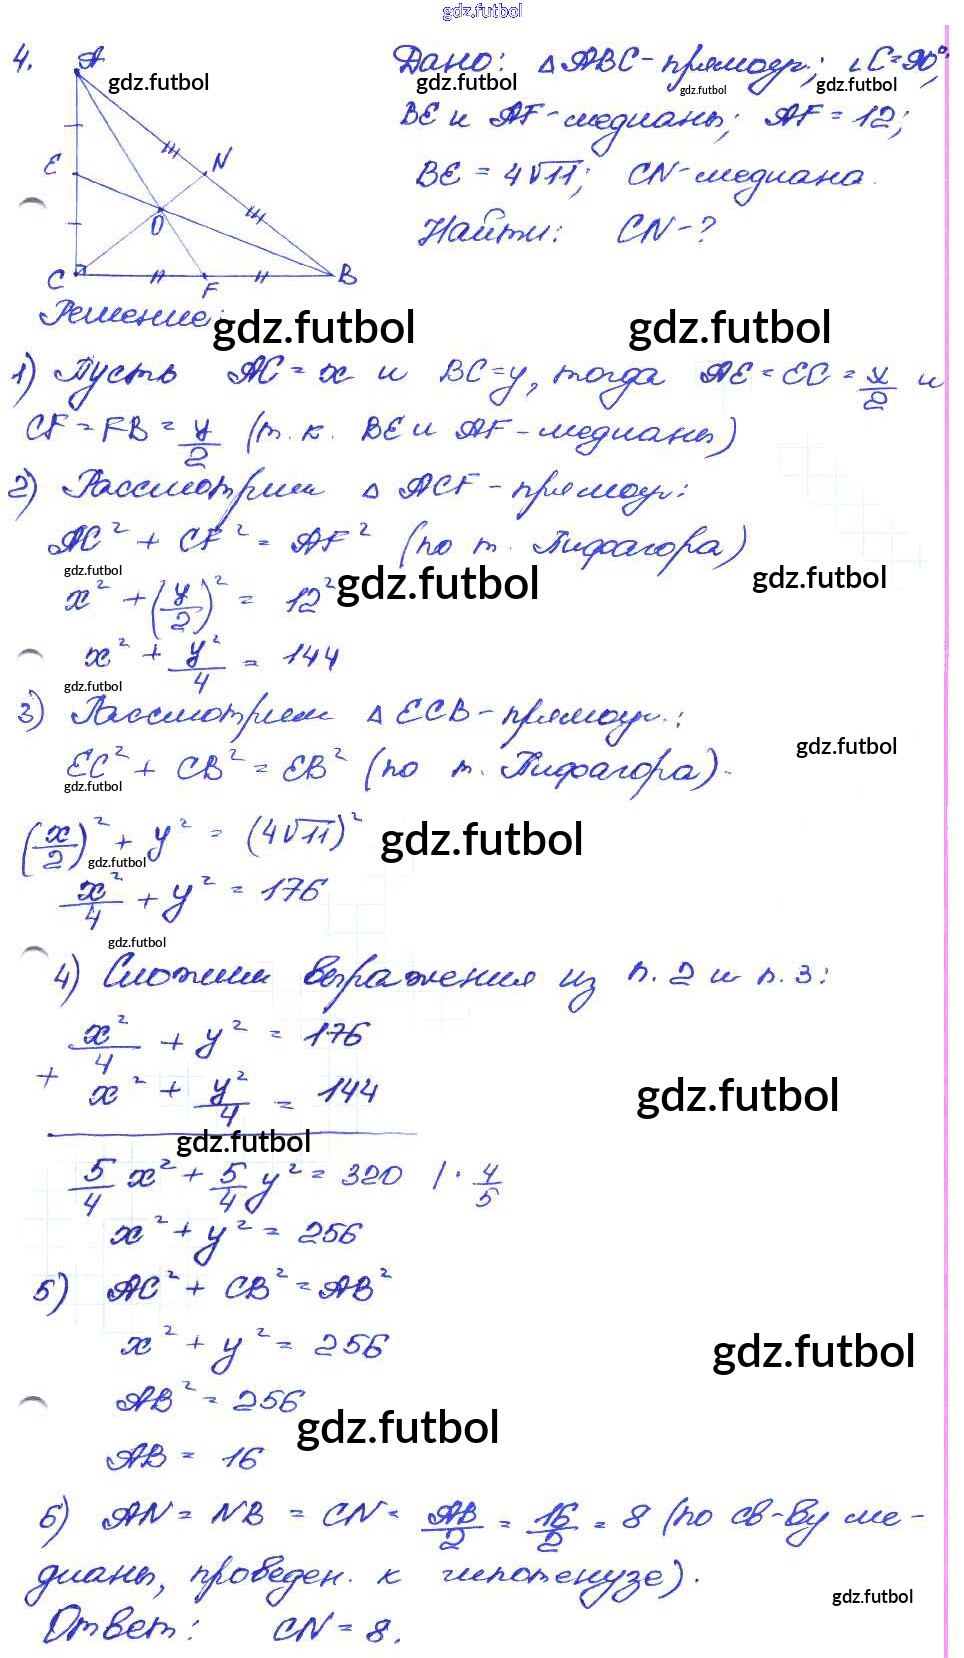 gdz.futbol
4.
A
E
N
O
C
F
B
gdz.futbol
Дано: △ABC-прямоуг.; ∠C=90°;
gdz.futbol gdz.futbol gdz.futbol
BE и AF-медианы; AF = 12;
BE = 4√11; CN-медиана.
Найти: CN-?
Решение:
gdz.futbol gdz.futbol
1) Пусть AC = x и BC=y, тогда AE = EC = x/2 и
CF = FB = y/2 (т. к. BE и AF-медианы)
2) Рассмотрим △ ACF-прямоуг.:
AC² + CF² = AF² (по т. Пифагора)
gdz.futbol gdz.futbol gdz.futbol
x² + (y/2)² = 12²
x² + y²/4 = 144
gdz.futbol
3) Рассмотрим △ ECB-прямоуг.:
gdz.futbol
EC² + CB² = EB² (по т. Пифагора).
gdz.futbol
(x/2)² + y² = (4√11)²
gdz.futbol gdz.futbol
x²/4 + y² = 176
gdz.futbol
4) Сложим выражения из п. 2 и п. 3:
x²/4 + y² = 176
+
x² + y²/4 = 144
gdz.futbol
gdz.futbol
5/4 x² + 5/4 y² = 320 | · 4/5
x² + y² = 256
5) AC² + CB² = AB²
x² + y² = 256
gdz.futbol
AB² = 256
gdz.futbol
AB = 16
6) AN = NB = CN = AB/2 = 16/2 = 8 (по св-ву ме-
дианы, проведен. к гипотенузе).
gdz.futbol
Ответ: CN = 8.